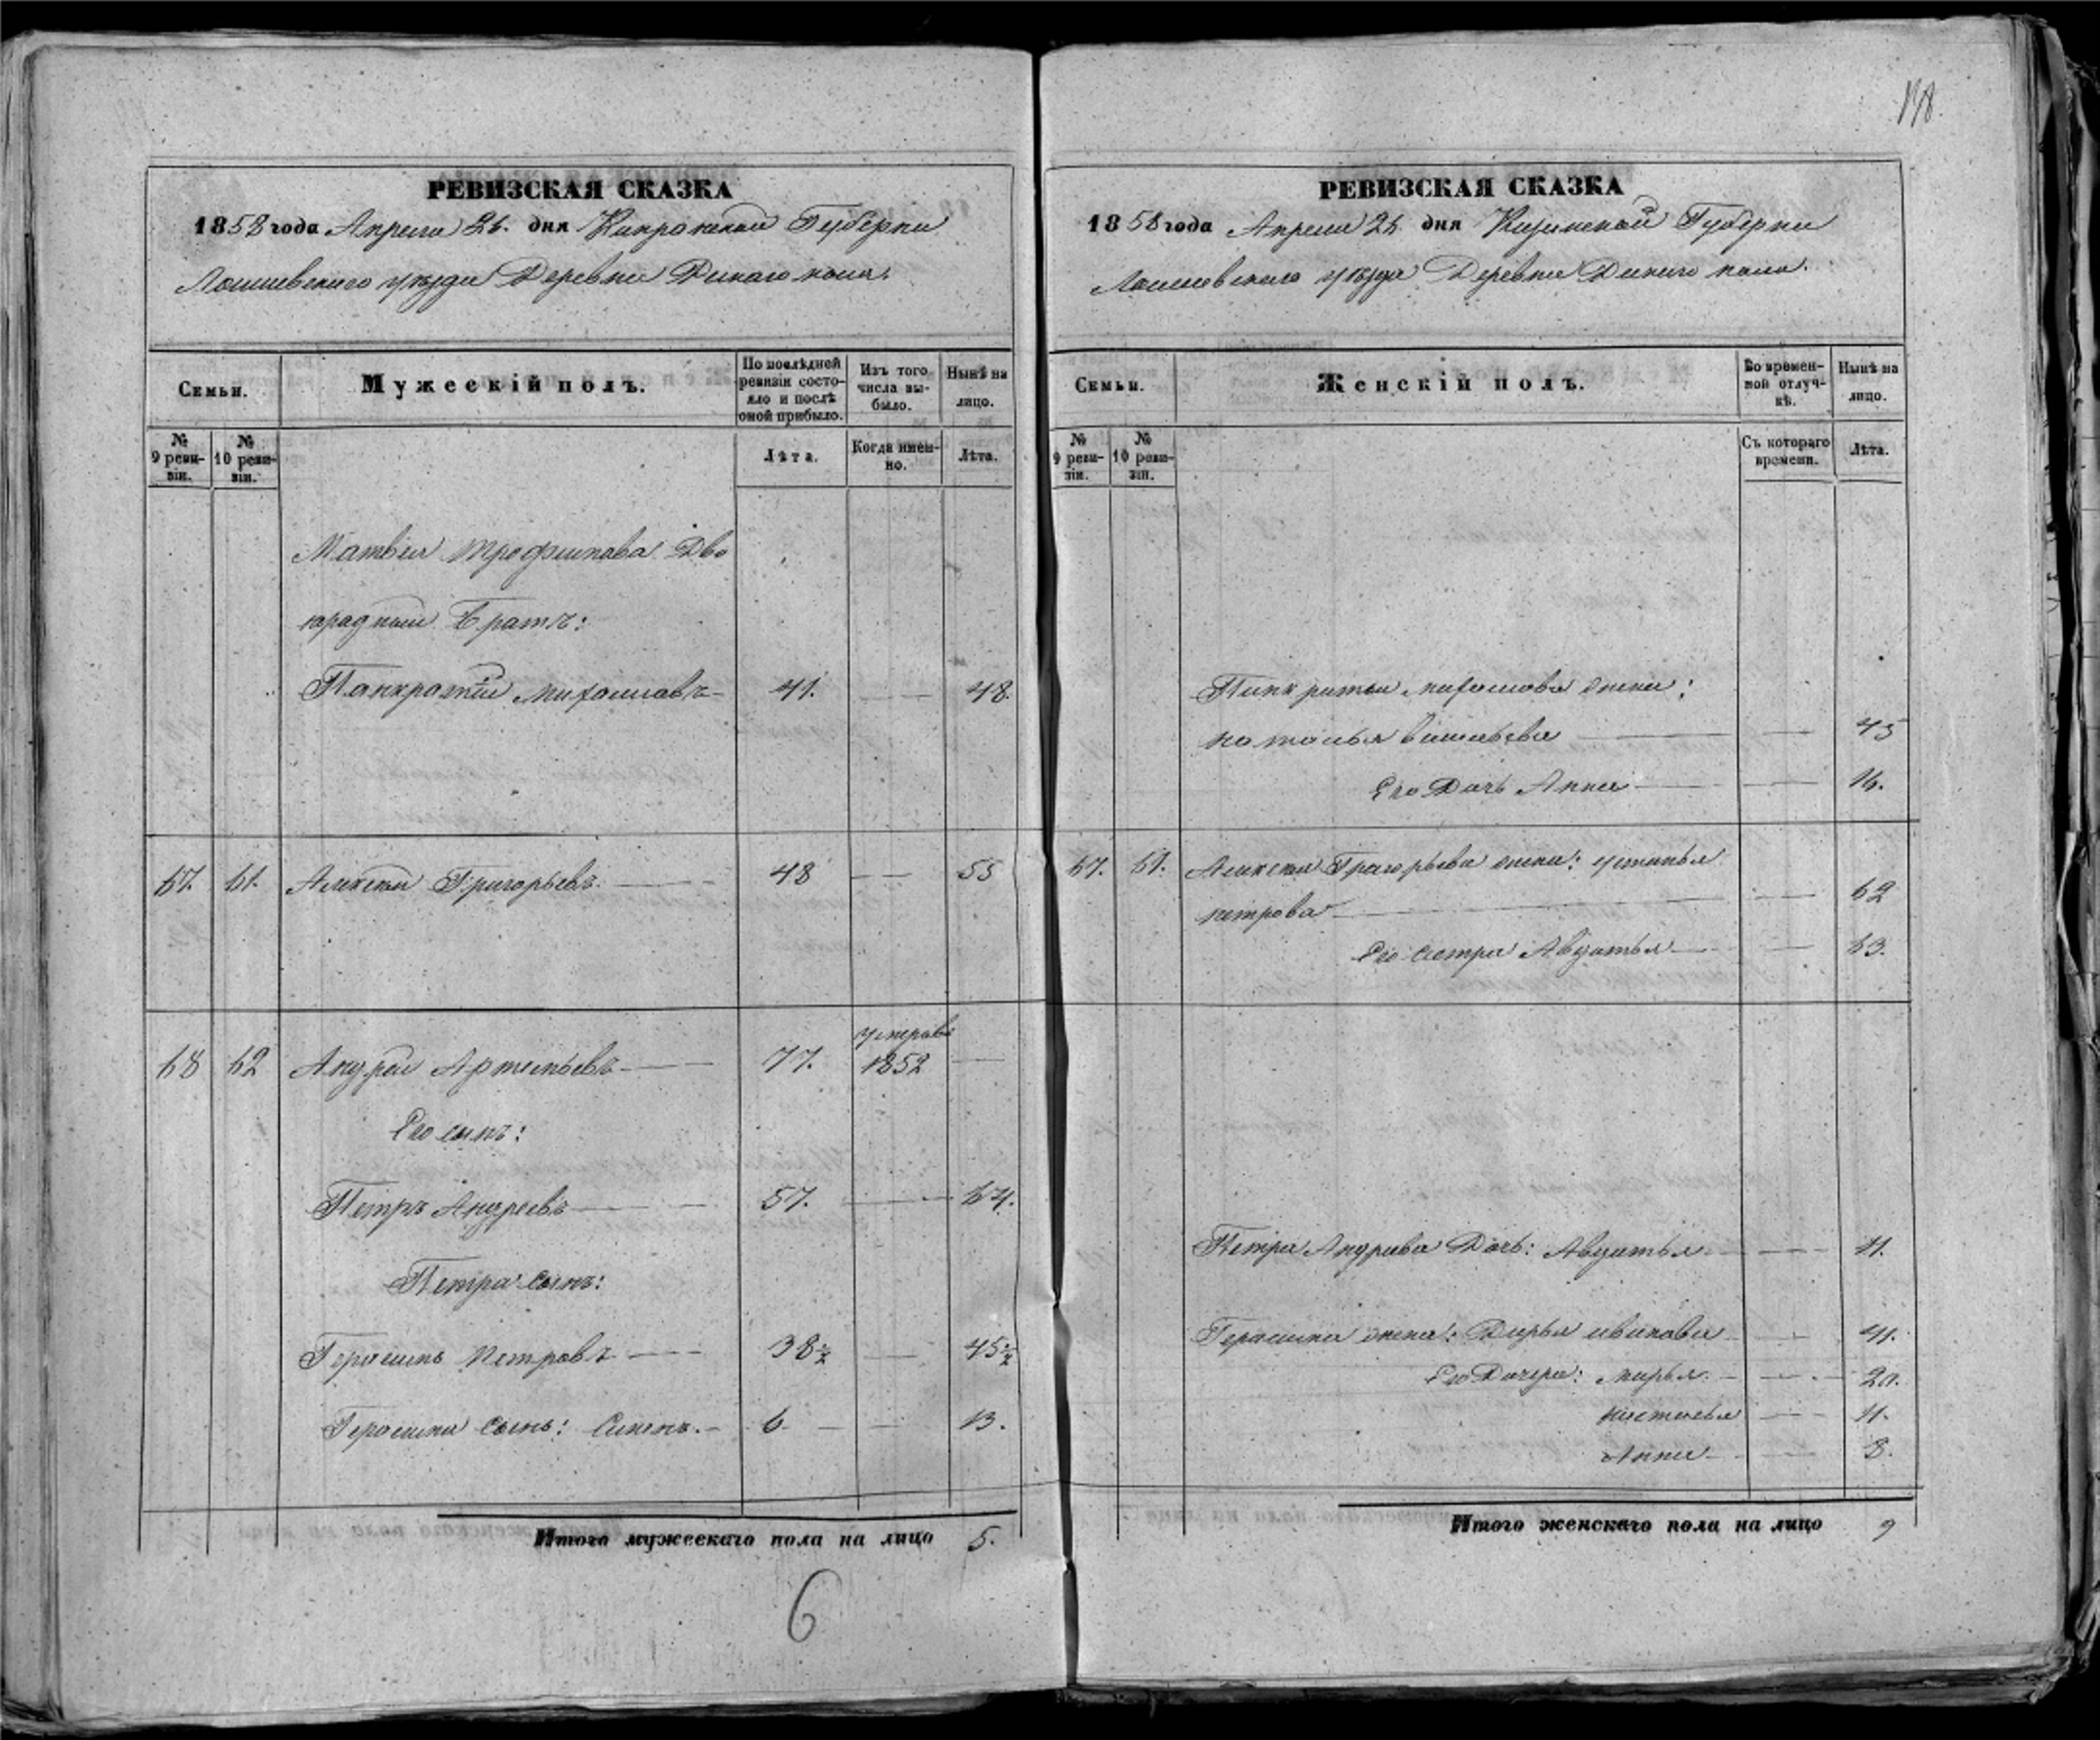 138.
РЕВИЗСКАЯ СКАЗКА
1858 года Апреля 26. дня Казанской Губернии
Лаишевского уѣзда Деревни Дикаго поля.
Семьи.
Мужескій полъ.
По послѣдней ревизіи состояло и послѣ оной прибыло.
Изъ того числа выбыло.
Нынѣ на лицо.
№ 9 ревизіи.
№ 10 ревизіи.
Лѣта.
Когда именно.
Лѣта.
Матвея Трофимова Дво
юрадный Братъ:
Панкратій Михаиловъ 41. 48.
67. 61. Алексей Григорьевъ. 48 55
68 62 Андрей Артемьевъ 77. умеръ 1852
Его сынъ:
Петръ Андреевъ 57. 64.
Петра сынъ:
Герасимъ Петровъ 38½ 45½
Герасима сынъ: Семенъ. 6 13.
Итого мужескаго пола на лицо 5.
6
РЕВИЗСКАЯ СКАЗКА
1858 года Апреля 26 дня Казанской Губернии
Лаишевскаго уѣзда Деревни Дикаго поля.
Семьи.
Женскій полъ.
Во временной отлучкѣ.
Нынѣ на лицо.
№ 9 ревизіи.
№ 10 ревизіи.
Съ котораго времени.
Лѣта.
Панкратья михаилова жена:
наталья васильева 45
Его Дочь Анна 16.
67. 61. Алексея Григорьева жена: устинья
петрова 62
Его сестра Авдотья 63.
Петра Андреева Дочь: Авдотья 11.
Герасима жена: Дарья иванова 41.
Его Дочери: марья. 20.
настасья 11.
Анна 8.
Итого женскаго пола на лицо 9